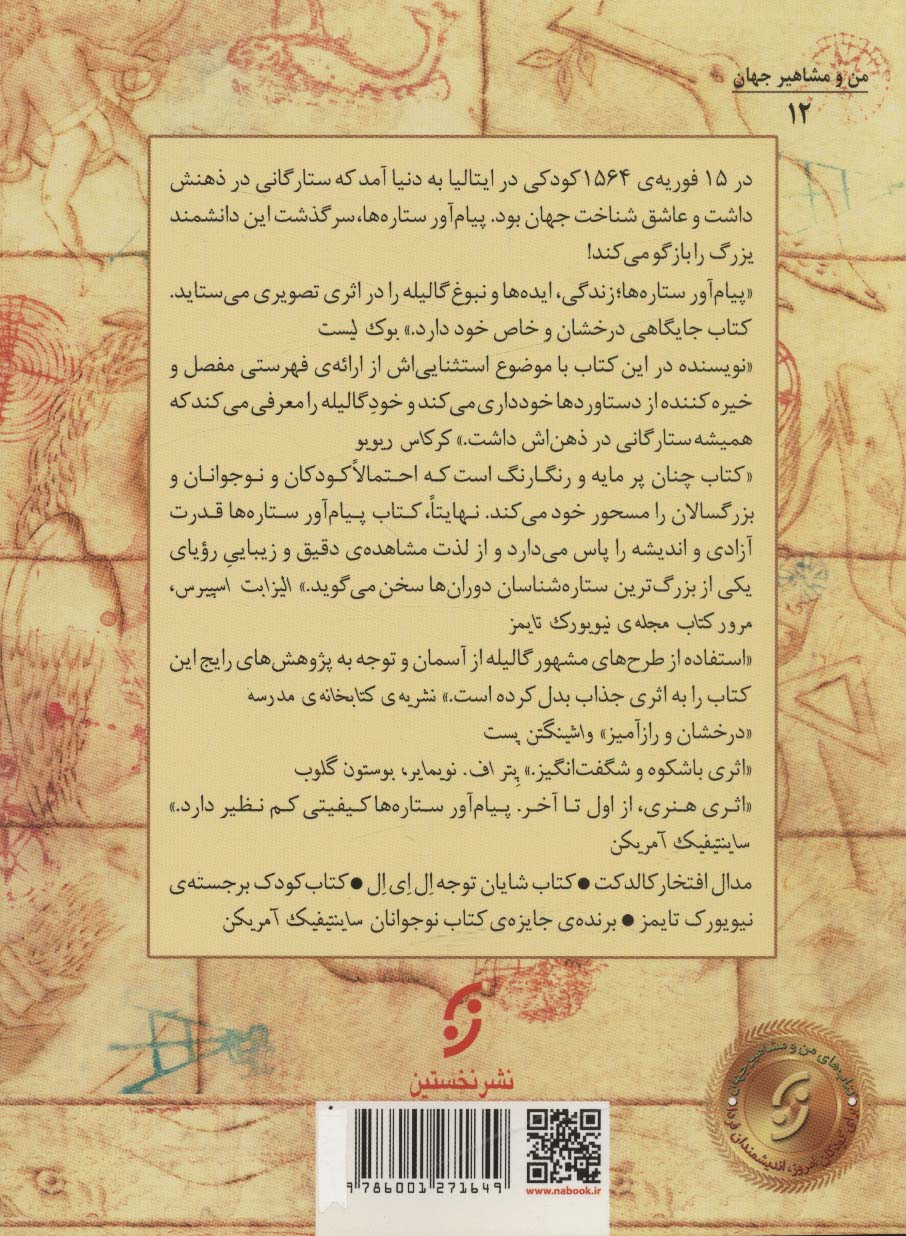 من و مشاهیر جهان
۱۲
در ۱۵ فوریه‌ی ۱۵۶۴ کودکی در ایتالیا به دنیا آمد که ستارگانی در ذهنش
داشت و عاشق شناخت جهان بود. پیام‌آور ستاره‌ها، سرگذشت این دانشمند
بزرگ را بازگو می‌کند!
«پیام‌آور ستاره‌ها؛ زندگی، ایده‌ها و نبوغ گالیله را در اثری تصویری می‌ستاید.
کتاب جایگاهی درخشان و خاص خود دارد.» بوک لیست
«نویسنده در این کتاب با موضوع استثنایی‌اش از ارائه‌ی فهرستی مفصل و
خیره کننده از دستاوردها خودداری می‌کند و خودِ گالیله را معرفی می‌کند که
همیشه ستارگانی در ذهن‌اش داشت.» کرکاس ریویو
«کتاب چنان پر مایه و رنگارنگ است که احتمالاً کودکان و نوجوانان و
بزرگسالان را مسحور خود می‌کند. نهایتاً، کتاب پیام‌آور ستاره‌ها قدرت
آزادی و اندیشه را پاس می‌دارد و از لذت مشاهده‌ی دقیق و زیباییِ رؤیای
یکی از بزرگ‌ترین ستاره‌شناسان دوران‌ها سخن می‌گوید.» الیزابت اسپیرس،
مرور کتاب مجله‌ی نیویورک تایمز
«استفاده از طرح‌های مشهور گالیله از آسمان و توجه به پژوهش‌های رایج این
کتاب را به اثری جذاب بدل کرده است.» نشریه‌ی کتابخانه‌ی مدرسه
«درخشان و رازآمیز» واشینگتن پست
«اثری باشکوه و شگفت‌انگیز.» پیتر اف. نویمایر، بوستون گلوب
«اثری هنری، از اول تا آخر. پیام‌آور ستاره‌ها کیفیتی کم نظیر دارد.»
ساینتیفیک آمریکن
مدال افتخار کالدکت ● کتاب شایان توجه اِل اِی اِل ● کتاب کودک برجسته‌ی
نیویورک تایمز ● برنده‌ی جایزه‌ی کتاب نوجوانان ساینتیفیک آمریکن
نشر نخستین
9 786001 271649
www.nabook.ir
کتاب‌های من و مشاهیر جهان
برای کودکان امروز، اندیشمندان فردا